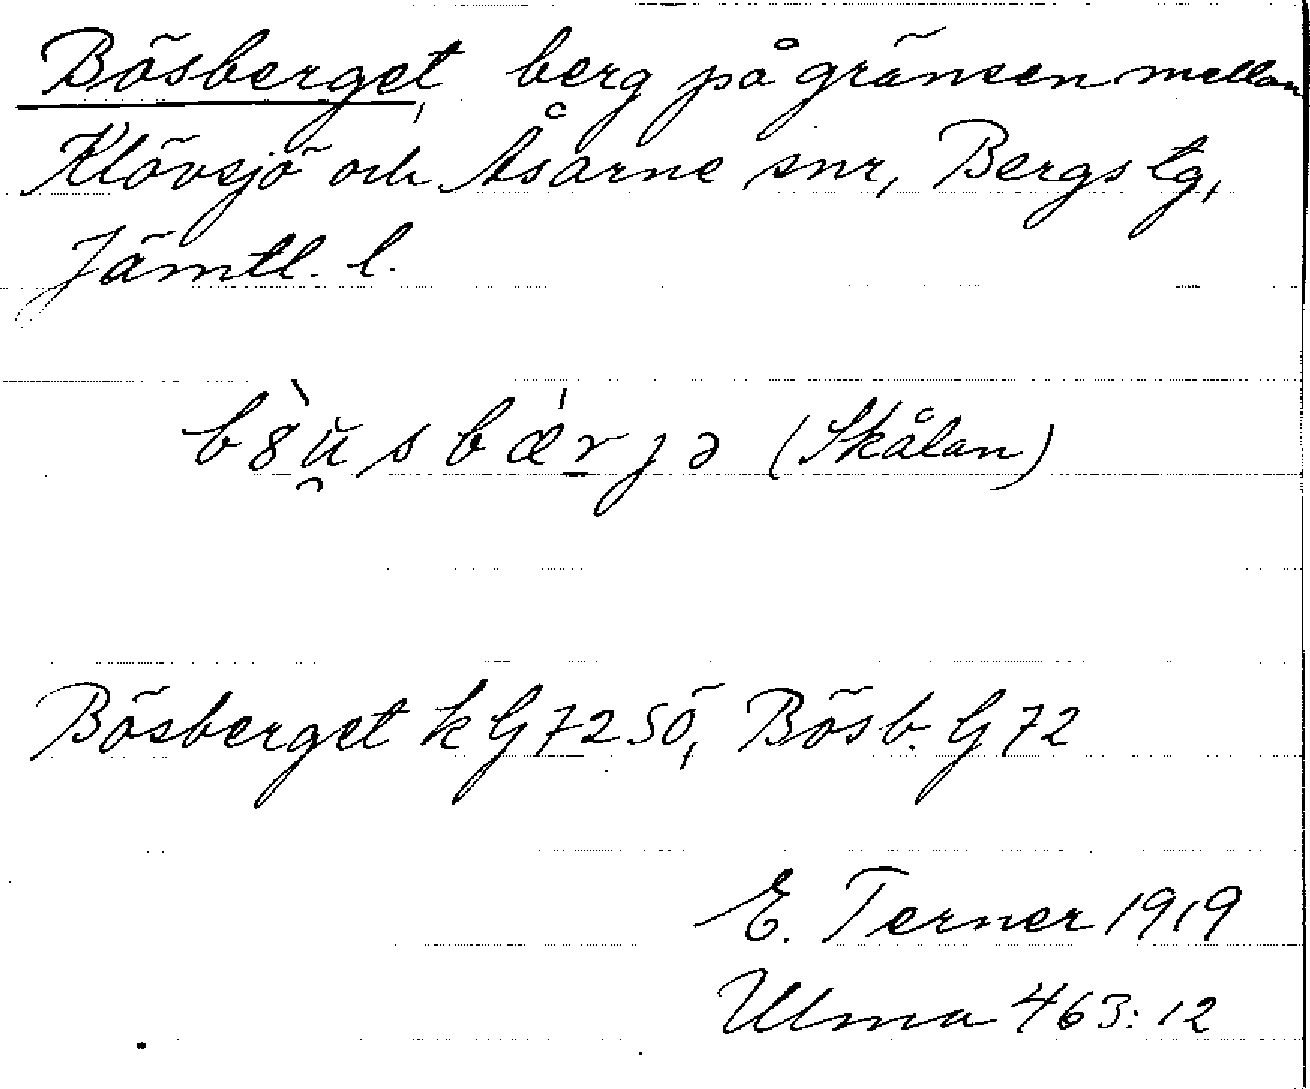 Bösberget, berg på gränsen mellan
Klövsjö och Åsarne snr, Bergs tg,
Jämtl. l.
b8̀ŭ̯sbæ̍rjə (Skålan)
Bösberget k G 72 SÖ, Bösb. G 72
E. Terner 1919
Ulma 463:12